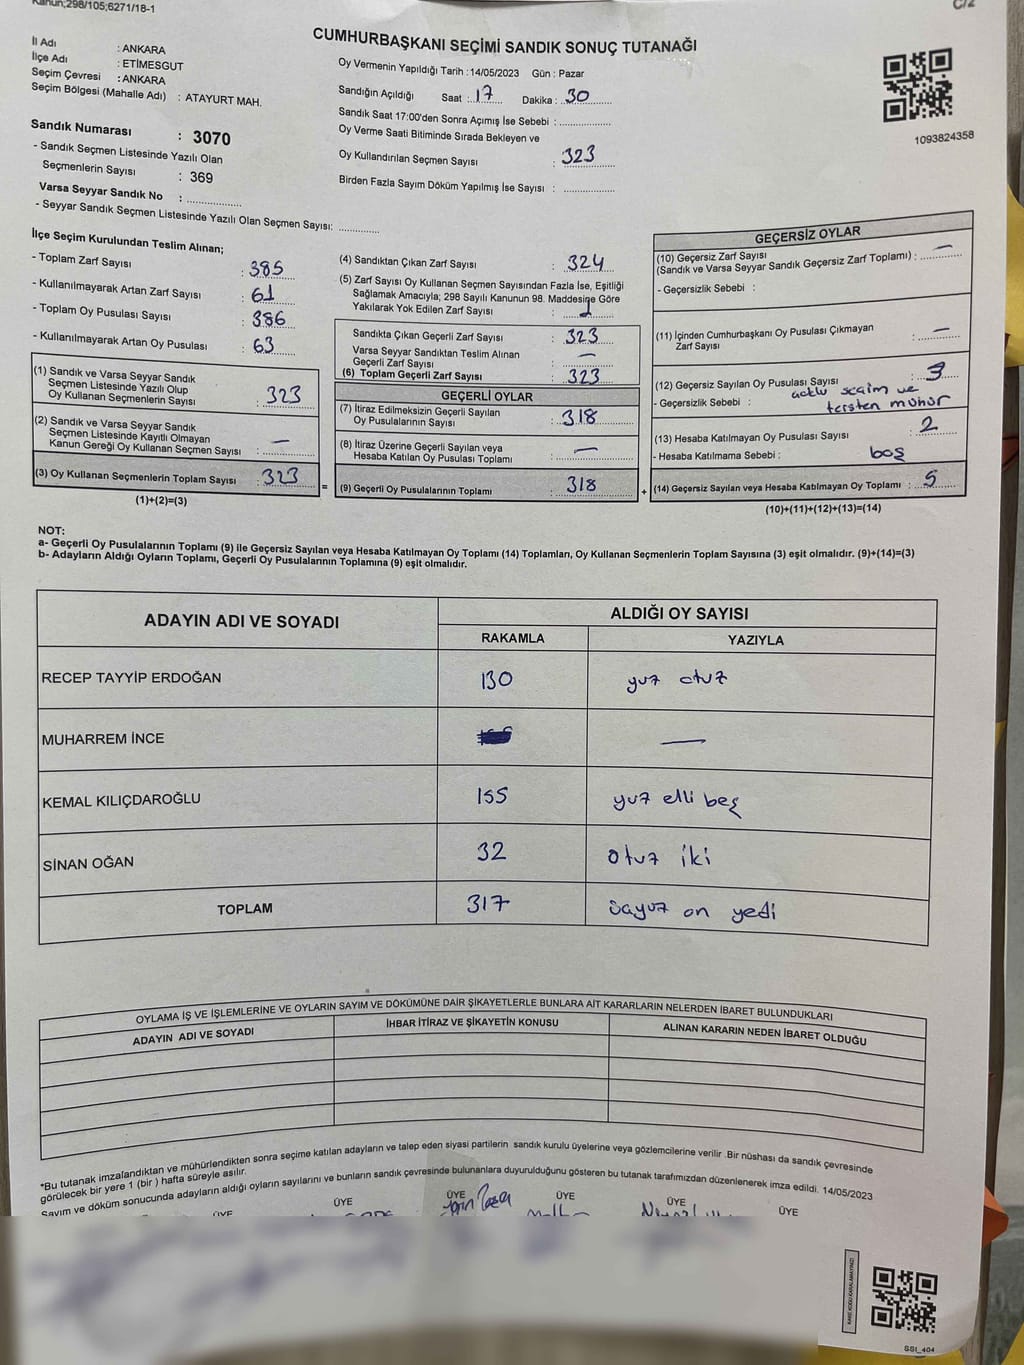 Kanun;298/105;6271/18-1
C/2
CUMHURBAŞKANI SEÇİMİ SANDIK SONUÇ TUTANAĞI
İl Adı : ANKARA
İlçe Adı : ETİMESGUT
Seçim Çevresi : ANKARA
Seçim Bölgesi (Mahalle Adı) : ATAYURT MAH.
Sandık Numarası : 3070
- Sandık Seçmen Listesinde Yazılı Olan
Seçmenlerin Sayısı : 369
Varsa Seyyar Sandık No : ..................
- Seyyar Sandık Seçmen Listesinde Yazılı Olan Seçmen Sayısı: .............
Oy Vermenin Yapıldığı Tarih : 14/05/2023 Gün : Pazar
Sandığın Açıldığı Saat : 17 Dakika : 30
Sandık Saat 17:00'den Sonra Açımış İse Sebebi : ................
Oy Verme Saati Bitiminde Sırada Bekleyen ve
Oy Kullandırılan Seçmen Sayısı : 323
Birden Fazla Sayım Döküm Yapılmış İse Sayısı : ................
1093824358
İlçe Seçim Kurulundan Teslim Alınan;
- Toplam Zarf Sayısı : 385
- Kullanılmayarak Artan Zarf Sayısı : 61
- Toplam Oy Pusulası Sayısı : 386
- Kullanılmayarak Artan Oy Pusulası : 63
(1) Sandık ve Varsa Seyyar Sandık
Seçmen Listesinde Yazılı Olup
Oy Kullanan Seçmenlerin Sayısı : 323
(2) Sandık ve Varsa Seyyar Sandık
Seçmen Listesinde Kayıtlı Olmayan
Kanun Gereği Oy Kullanan Seçmen Sayısı : —
(3) Oy Kullanan Seçmenlerin Toplam Sayısı : 323
(1)+(2)=(3)
(4) Sandıktan Çıkan Zarf Sayısı : 324
(5) Zarf Sayısı Oy Kullanan Seçmen Sayısından Fazla İse, Eşitliği
Sağlamak Amacıyla; 298 Sayılı Kanunun 98. Maddesine Göre
Yakılarak Yok Edilen Zarf Sayısı : 1
Sandıkta Çıkan Geçerli Zarf Sayısı : 323
Varsa Seyyar Sandıktan Teslim Alınan
Geçerli Zarf Sayısı : —
(6) Toplam Geçerli Zarf Sayısı : 323
GEÇERLİ OYLAR
(7) İtiraz Edilmeksizin Geçerli Sayılan
Oy Pusulalarının Sayısı : 318
(8) İtiraz Üzerine Geçerli Sayılan veya
Hesaba Katılan Oy Pusulası Toplamı : —
(9) Geçerli Oy Pusulalarının Toplamı : 318
GEÇERSİZ OYLAR
(10) Geçersiz Zarf Sayısı
(Sandık ve Varsa Seyyar Sandık Geçersiz Zarf Toplamı) : —
- Geçersizlik Sebebi :
(11) İçinden Cumhurbaşkanı Oy Pusulası Çıkmayan
Zarf Sayısı : —
(12) Geçersiz Sayılan Oy Pusulası Sayısı : 3
- Geçersizlik Sebebi : seçim ve
tersten mühür
(13) Hesaba Katılmayan Oy Pusulası Sayısı : 2
- Hesaba Katılmama Sebebi : boş
(14) Geçersiz Sayılan veya Hesaba Katılmayan Oy Toplamı : 5
= +
(10)+(11)+(12)+(13)=(14)
NOT:
a- Geçerli Oy Pusulalarının Toplamı (9) ile Geçersiz Sayılan veya Hesaba Katılmayan Oy Toplamı (14) Toplamları, Oy Kullanan Seçmenlerin Toplam Sayısına (3) eşit olmalıdır. (9)+(14)=(3)
b- Adayların Aldığı Oyların Toplamı, Geçerli Oy Pusulalarının Toplamına (9) eşit olmalıdır.
ADAYIN ADI VE SOYADI
ALDIĞI OY SAYISI
RAKAMLA YAZIYLA
RECEP TAYYİP ERDOĞAN 130 yuz otuz
MUHARREM İNCE —
KEMAL KILIÇDAROĞLU 155 yuz elli beş
SİNAN OĞAN 32 otuz iki
TOPLAM 317 üçyuz on yedi
OYLAMA İŞ VE İŞLEMLERİNE VE OYLARIN SAYIM VE DÖKÜMÜNE DAİR ŞİKAYETLERLE BUNLARA AİT KARARLARIN NELERDEN İBARET BULUNDUKLARI
ADAYIN ADI VE SOYADI İHBAR İTİRAZ VE ŞİKAYETİN KONUSU ALINAN KARARIN NEDEN İBARET OLDUĞU
*Bu tutanak imzalandıktan ve mühürlendikten sonra seçime katılan adayların ve talep eden siyasi partilerin sandık kurulu üyelerine veya gözlemcilerine verilir. Bir nüshası da sandık çevresinde
görülecek bir yere 1 (bir) hafta süreyle asılır.
Sayım ve döküm sonucunda adayların aldığı oyların sayılarını ve bunların sandık çevresinde bulunanlara duyurulduğunu gösteren bu tutanak tarafımızdan düzenlenerek imza edildi. 14/05/2023
ÜYE ÜYE ÜYE ÜYE ÜYE ÜYE
SSI_404